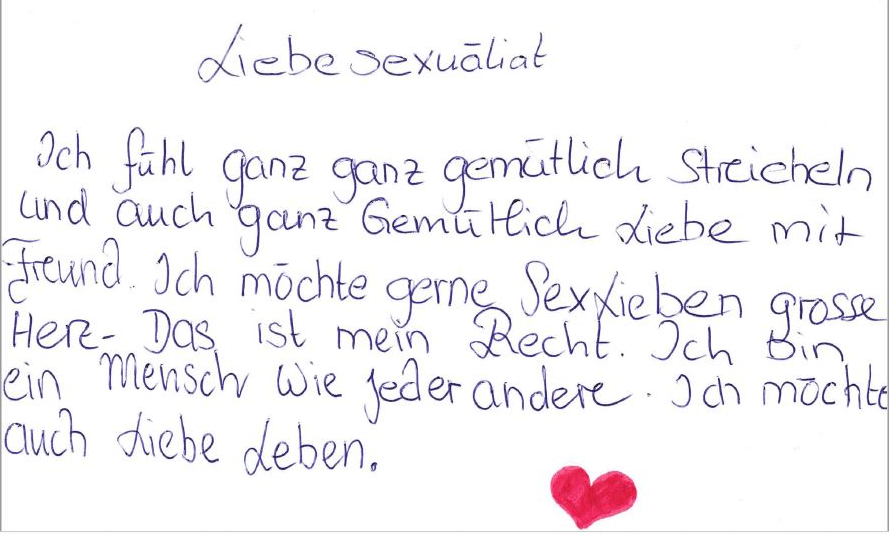 Liebe sexuäliat
Ich fühl ganz ganz gemütlich Streicheln
und auch ganz Gemütlich Liebe mit
Freund. Ich möchte gerne Sex Lieben grosse
Herz- Das ist mein Recht. Ich bin
ein Mensch wie jeder andere. Ich möchte
auch Liebe Leben.